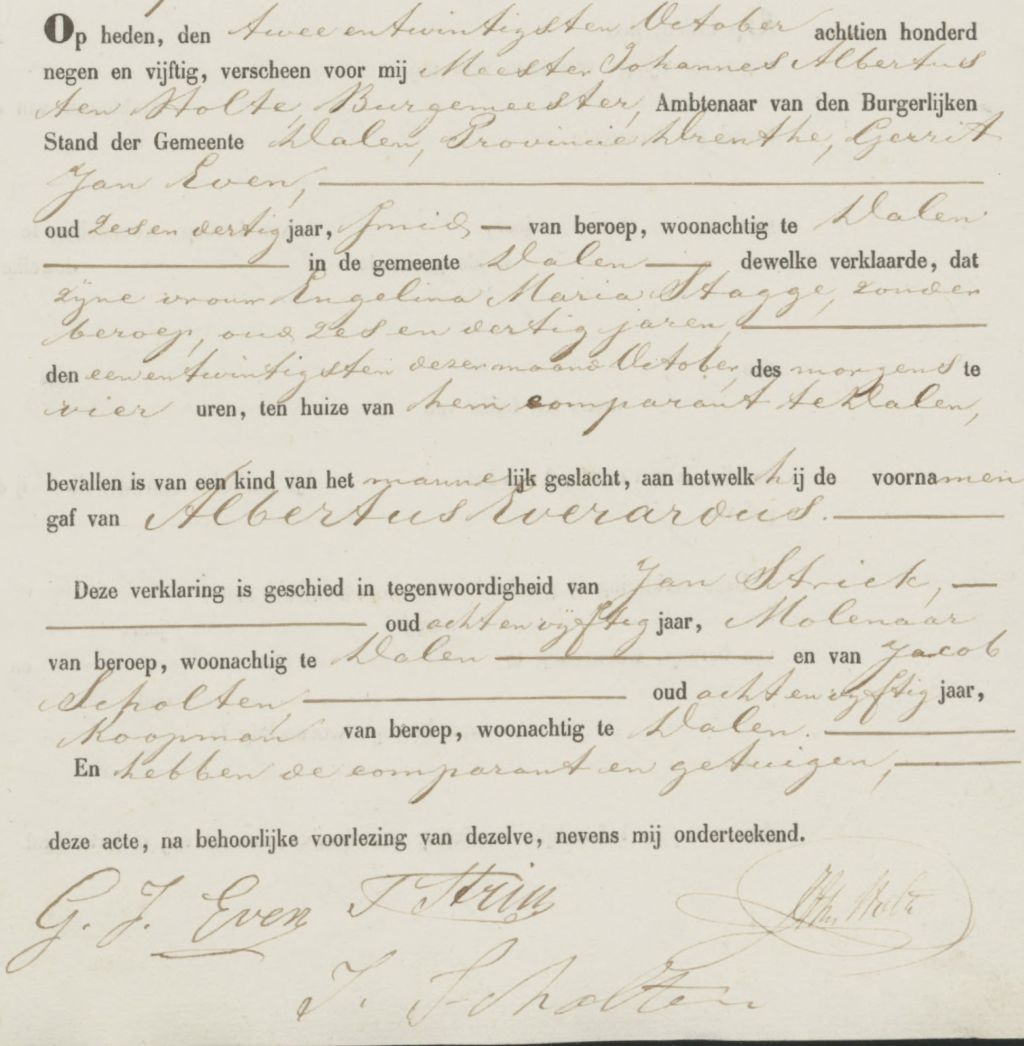 Op heden, den twee en twintigsten October achttien honderd
negen en vijftig, verscheen voor mij Meester Johannes Albertus
ten Holte, Burgemeester, Ambtenaar van den Burgerlijken
Stand der Gemeente Dalen, Provincie Drenthe, Gerrit
Jan Even,
oud zes en dertig jaar, smid van beroep, woonachtig te Dalen
in de gemeente Dalen dewelke verklaarde, dat
zijne vrouw Engelina Maria Stagge, zonder
beroep, oud zes en dertig jaren,
den een en twintigsten dezer maand October, des morgens te
vier uren, ten huize van hem comparant te Dalen,
bevallen is van een kind van het mannelijk geslacht, aan hetwelk hij de voornamen
gaf van Albertus Everardus.
Deze verklaring is geschied in tegenwoordigheid van Jan Striek,
oud acht en vijftig jaar, Molenaar
van beroep, woonachtig te Dalen en van Jacob
Scholten, oud acht en vijftig jaar,
Koopman van beroep, woonachtig te Dalen.
En hebben de comparant en getuigen,
deze acte, na behoorlijke voorlezing van dezelve, nevens mij onderteekend.
G. J. Even
J. Scholten